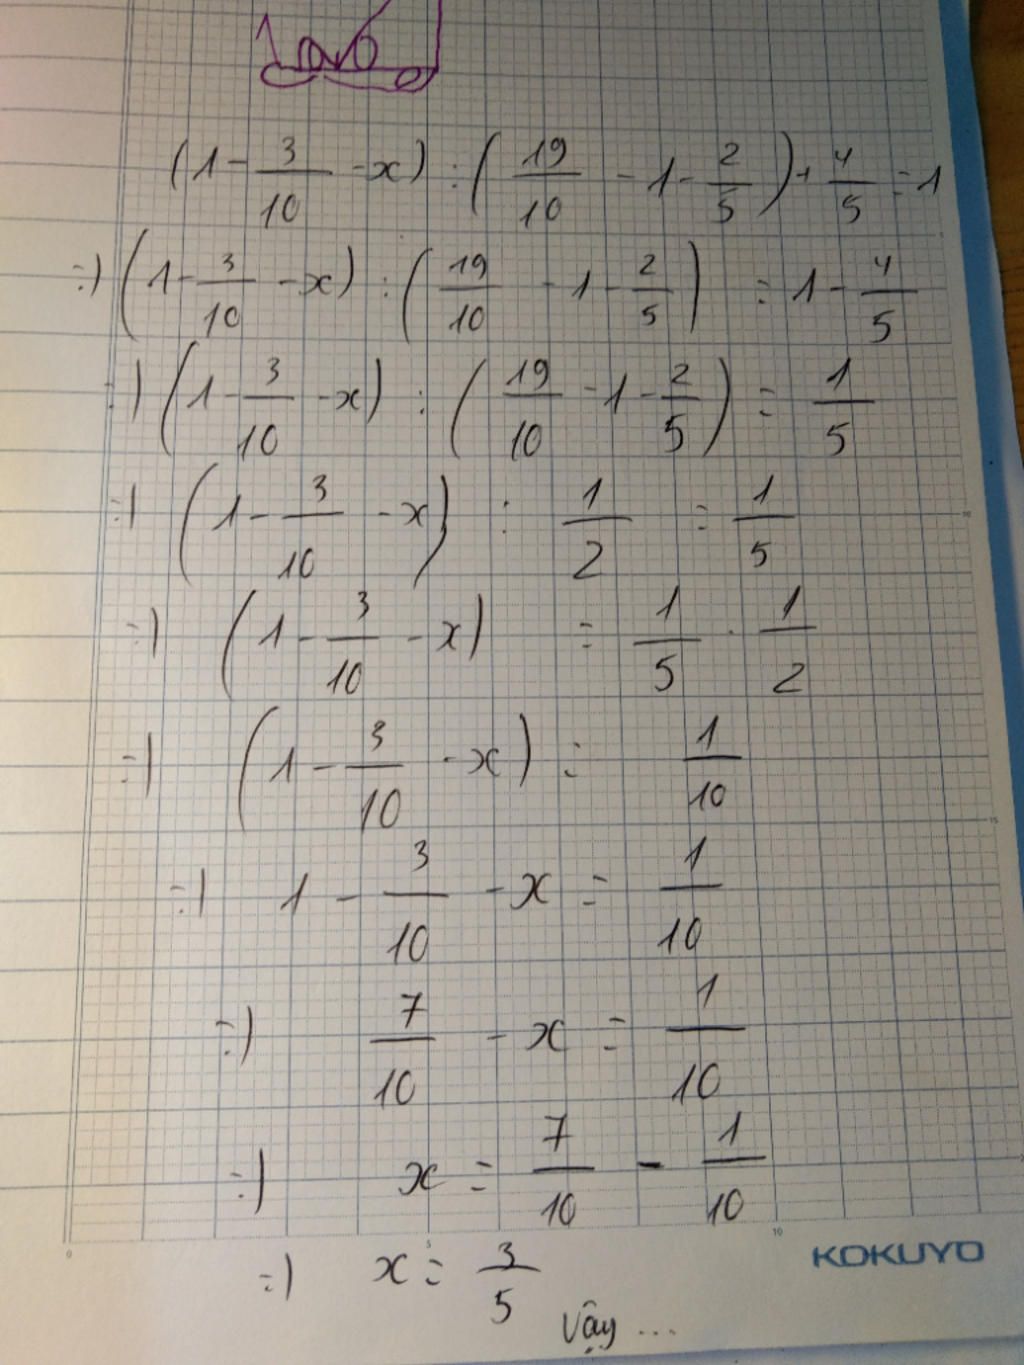 (1 - 3/10 - x) : (19/10 - 1 - 2/5) + 4/5 = 1
=) (1 - 3/10 - x) : (19/10 - 1 - 2/5) = 1 - 4/5
=) (1 - 3/10 - x) : (19/10 - 1 - 2/5) = 1/5
=) (1 - 3/10 - x) : 1/2 = 1/5
=) (1 - 3/10 - x) = 1/5 . 1/2
=) (1 - 3/10 - x) = 1/10
=) 1 - 3/10 - x = 1/10
=) 7/10 - x = 1/10
=) x = 7/10 - 1/10
0 5 10
KOKUYO
=) x = 3/5
Vậy ...